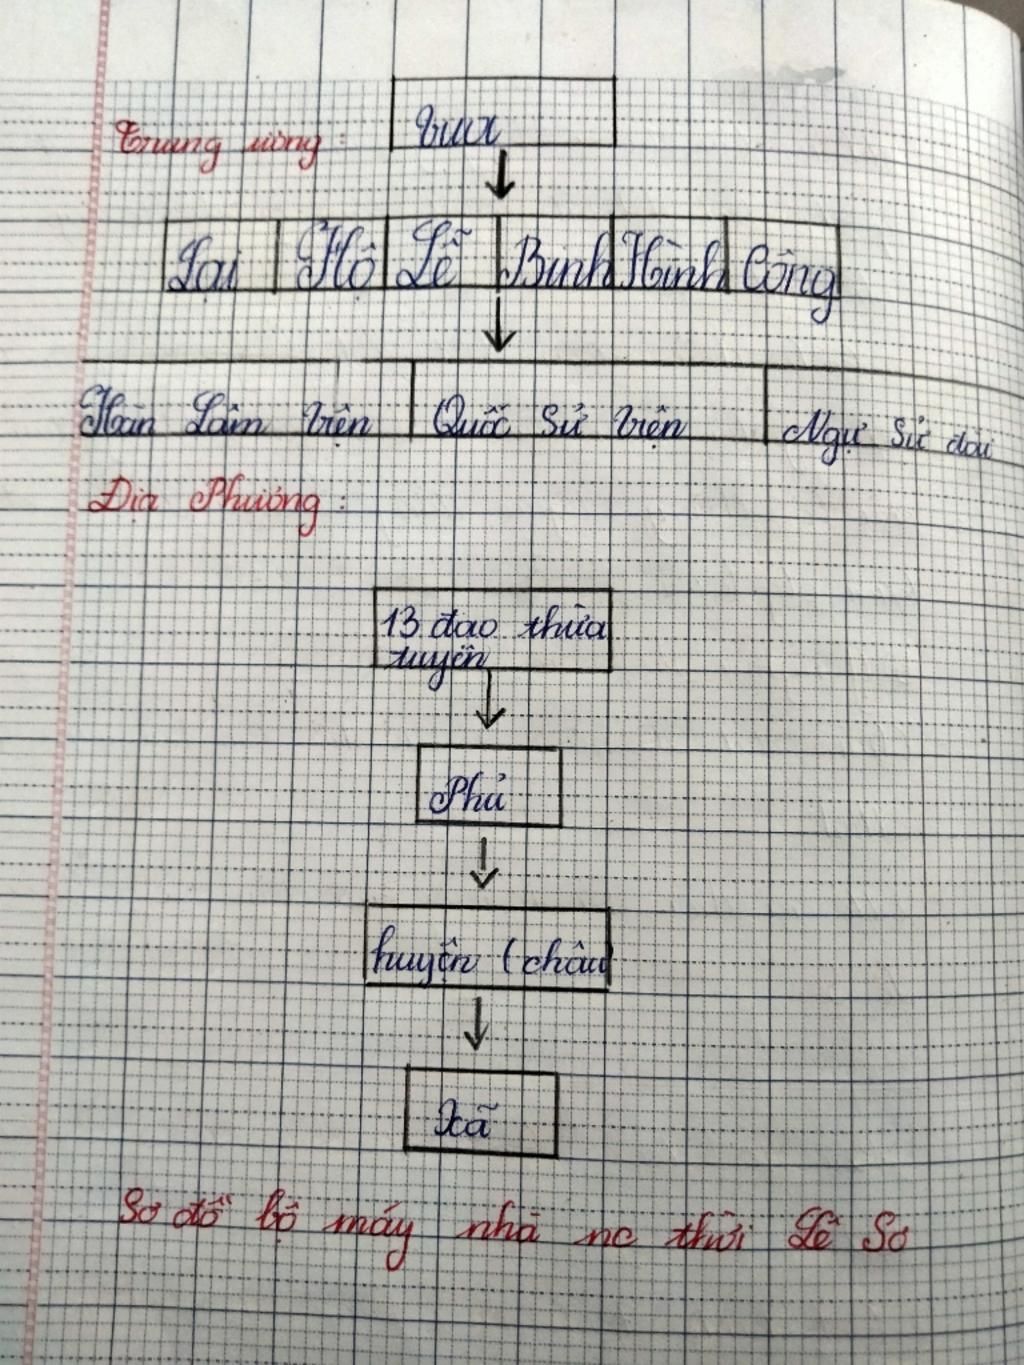 Trung ương :
Vua
Lại Hộ Lễ Binh Hình Công
Hàn Lâm Viện Quốc Sử Viện Ngự Sử đài
Địa Phương :
13 đạo thừa
tuyên
Phủ
huyện (châu
Xã
Sơ đồ bộ máy nhà nc thời Lê Sơ